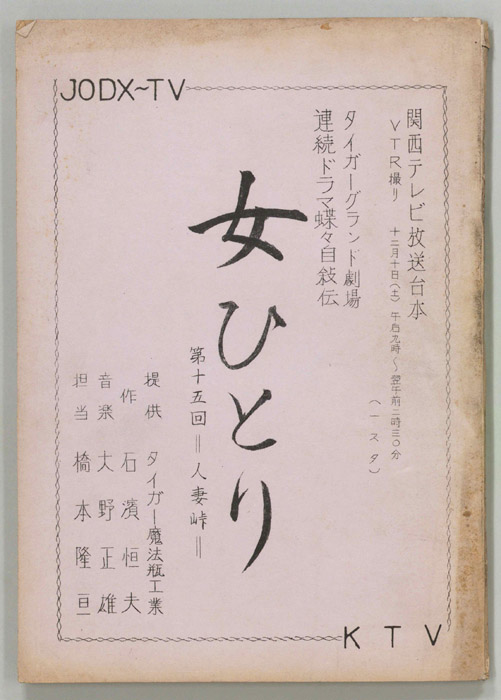 JODX~TV
関西テレビ放送台本
VTR撮り 十二月十日(土) 午后九時〜翌午前二時三〇分
(一スタ)
タイガーグランド劇場
連続ドラマ蝶々自敍伝
女ひとり
第十五回=人妻峠=
提供 タイガー魔法瓶工業
作 石濱恒夫
音楽 大野正雄
担当 橋本隆亘
KTV